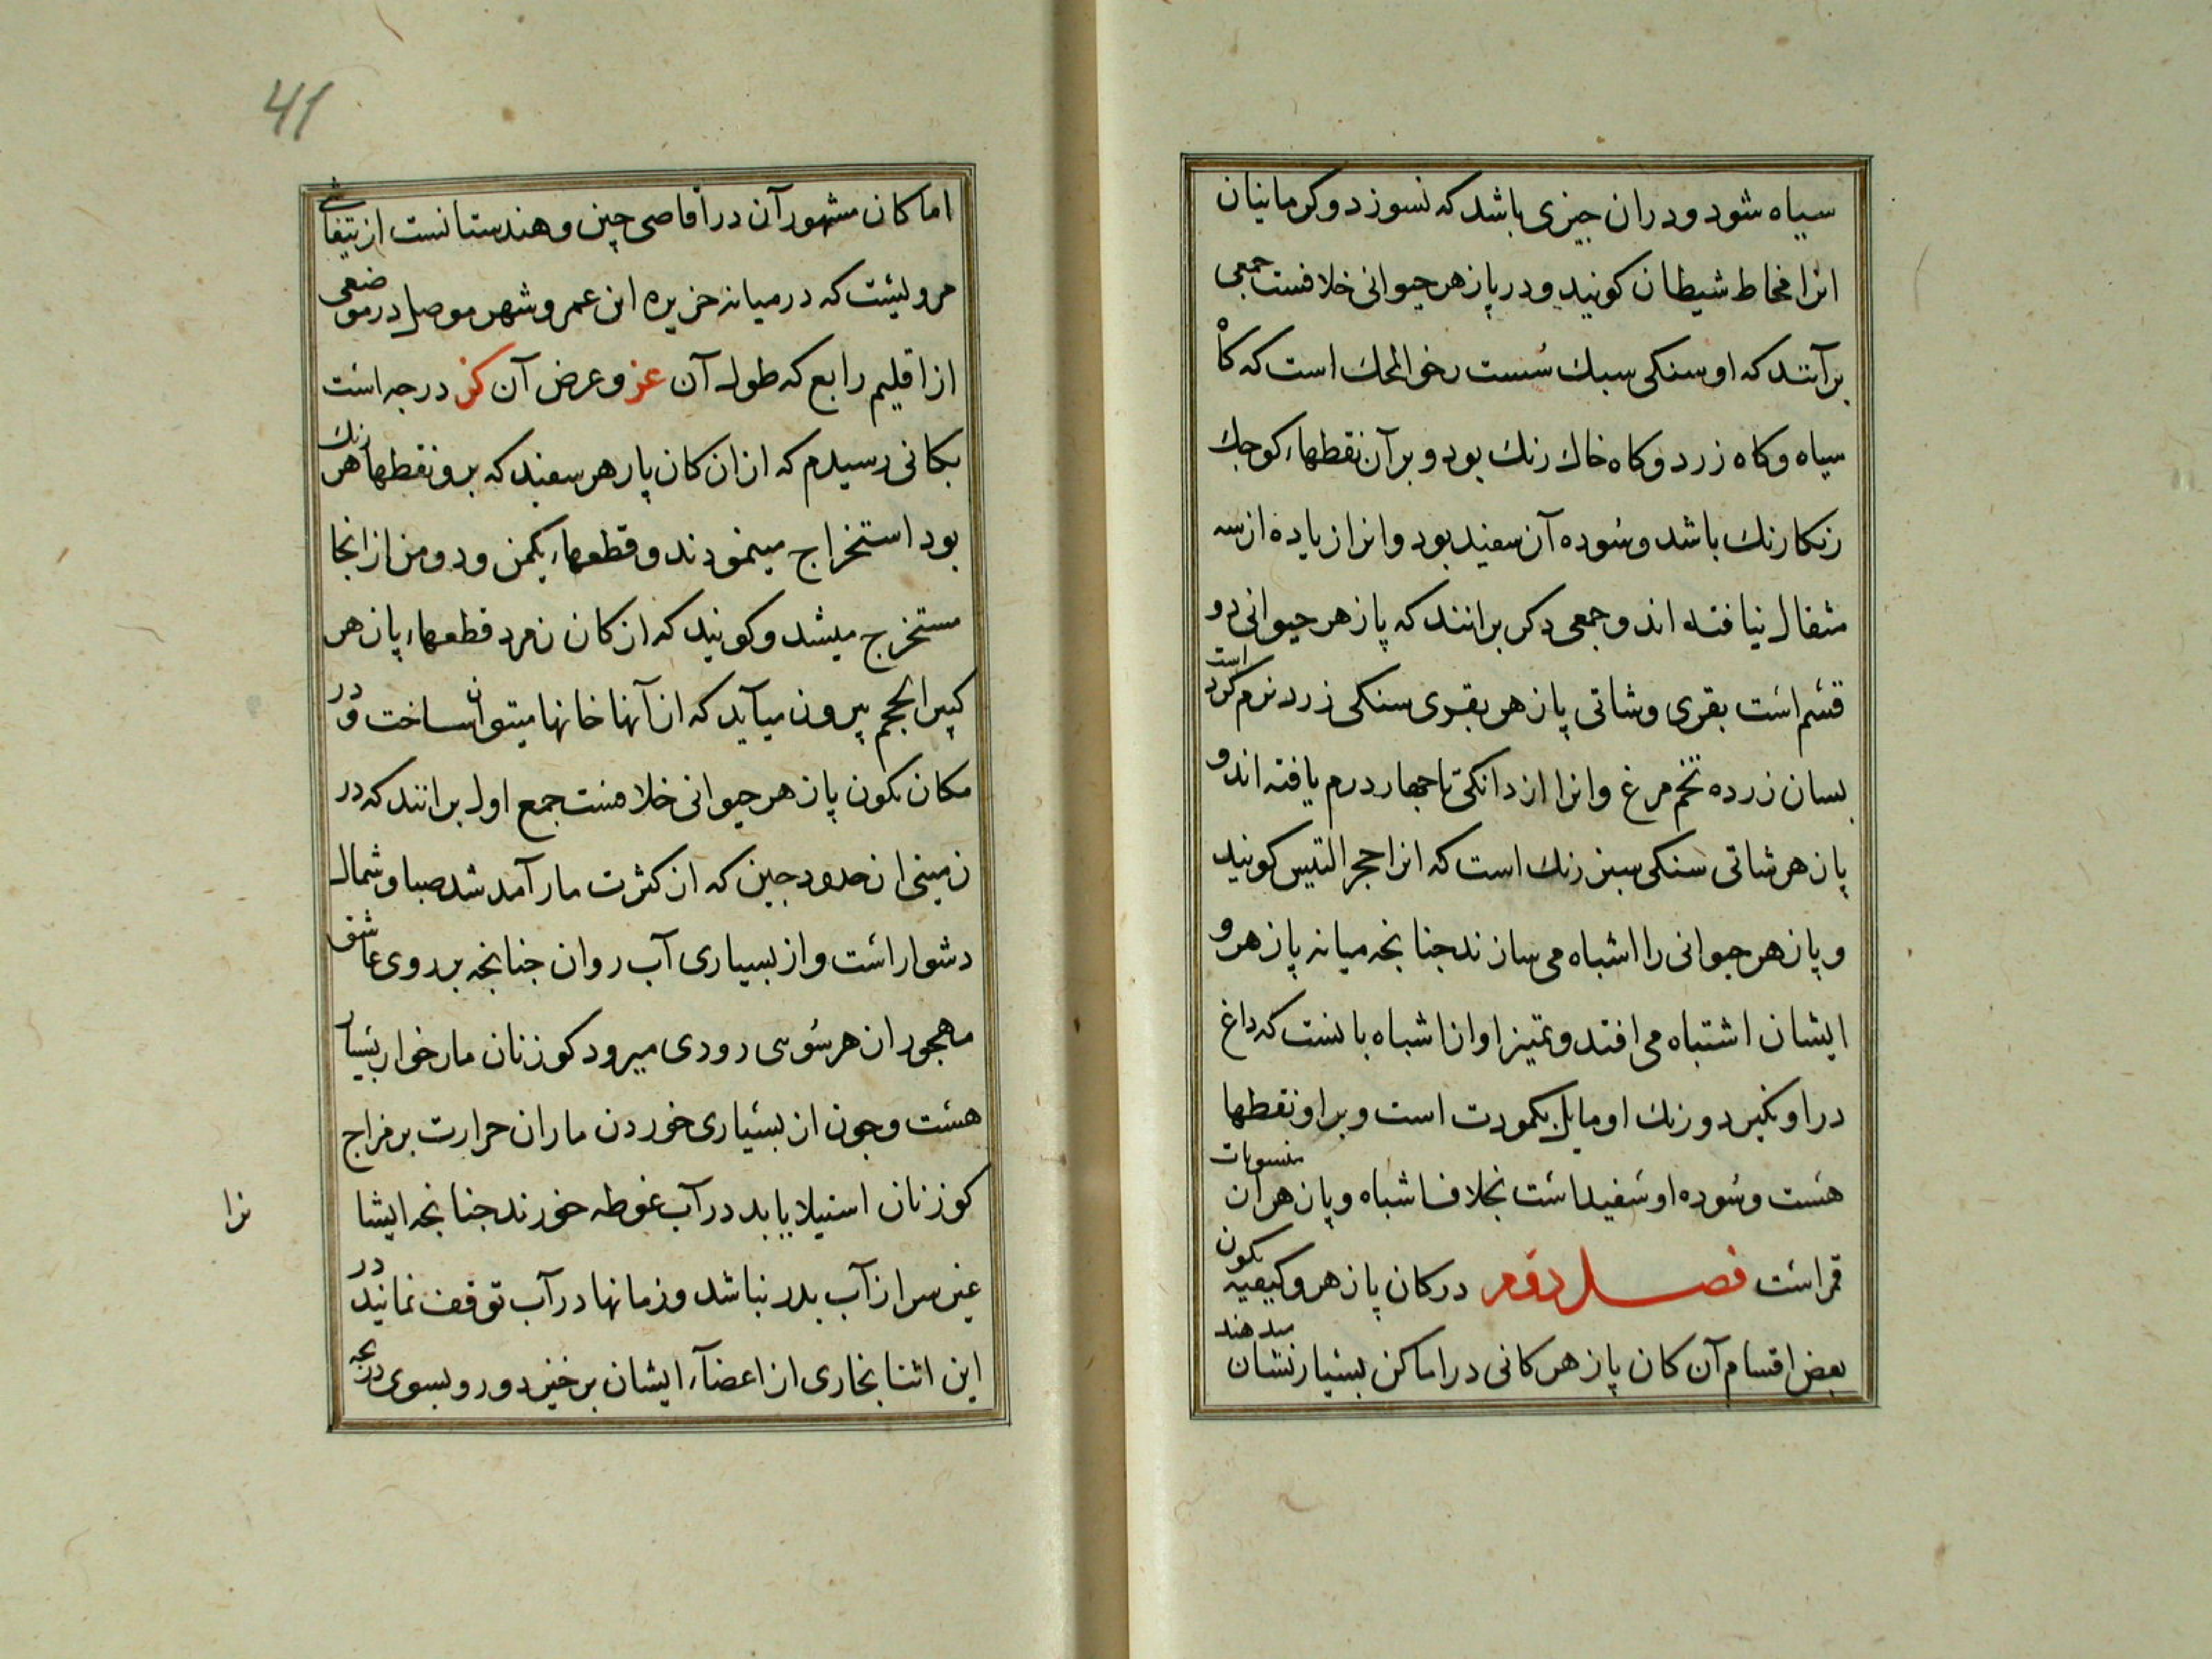 سیاه شود و دران چیزی باشد که نسوزد و کرمانیان
انرا مخاط شیطان کویند و در پازهر حیوانی خلافست جمعی
برآنند که او سنکی سبک سُست رخو المحک است که کاْه
سیاه و کاه زرد و کاه خاک رنک بود و برآن نقطهاء کوجک
زنکار رنک باشد و سُوده آن سفید بود و انرا زیاده از سه
مثقال نیافته اند و جمعی دکر برانند که پازهر حیوانی دو
قسم است بقری و شاتی پازهر بقری سنکی زرد نرم کرد است
بسان زرده تخم مرغ و انرا از دانکی تا جهار درم یافته اند و
پازهر شاتی سنکی سبز رنک است که انرا حجر التیس کویند
و پازهر حیوانی را اشباه می سازند جنانجه میانه پازهر و
ایشان اشتباه می افتد و تمیز او از اشباه بانست که داغ
در او نکیرد و رنک او مایل بکمودت است و بر او نقطها
هست و سُوده او سُفید است بخلاف اشباه و پازهر ان منسوبات
قمر است فصل دوم در کان پازهر و کیفیه تکون
بعض اقسام آن کان پازهر کانی در اماکن بسیار نشان میدهند
41
اما کان مشهور آن در اقاصی چین و هندستانست از تیفاشی
مرویست که در میانه جزیره ابن عمر و شهر موصل در موضعی
از اقلیم رابع که طول آن عز و عرض آن کز درجه است
بکانی رسیدم که ازان کان پازهر سفید که برو نقطها هر رنک
بود استخراج مینمودند و قطعهاء یکمن و دو من از انجا
مستخرج میشد و کویند که از کان زمرد قطعهاء پازهر
کبیر الحجم بیرون میآید که از آنها خانها میتوان ساخت و در
مکان تکون پازهر حیوانی خلافست جمع اول برانند که در
زمینی از حدود جین که از کثرت مار آمد شد صبا و شمال
دشوار است و از بسیاری آب روان جنانجه بر روی عاشق
مهجور از هر سُوی رودی میرود کوزنان مار خوار بسیار
هست و جون از بسیاری خوردن ماران حرارت بر مزاج
کوزنان استیلا یابد در آب غوطه خورند جنانجه ایشا
نرا
غیر سر از آب بدر نباشد و زمانها در آب توقف نمایند در
این اثنا بخاری از اعضآء ایشان برخیزد و رو بسوی دریجه